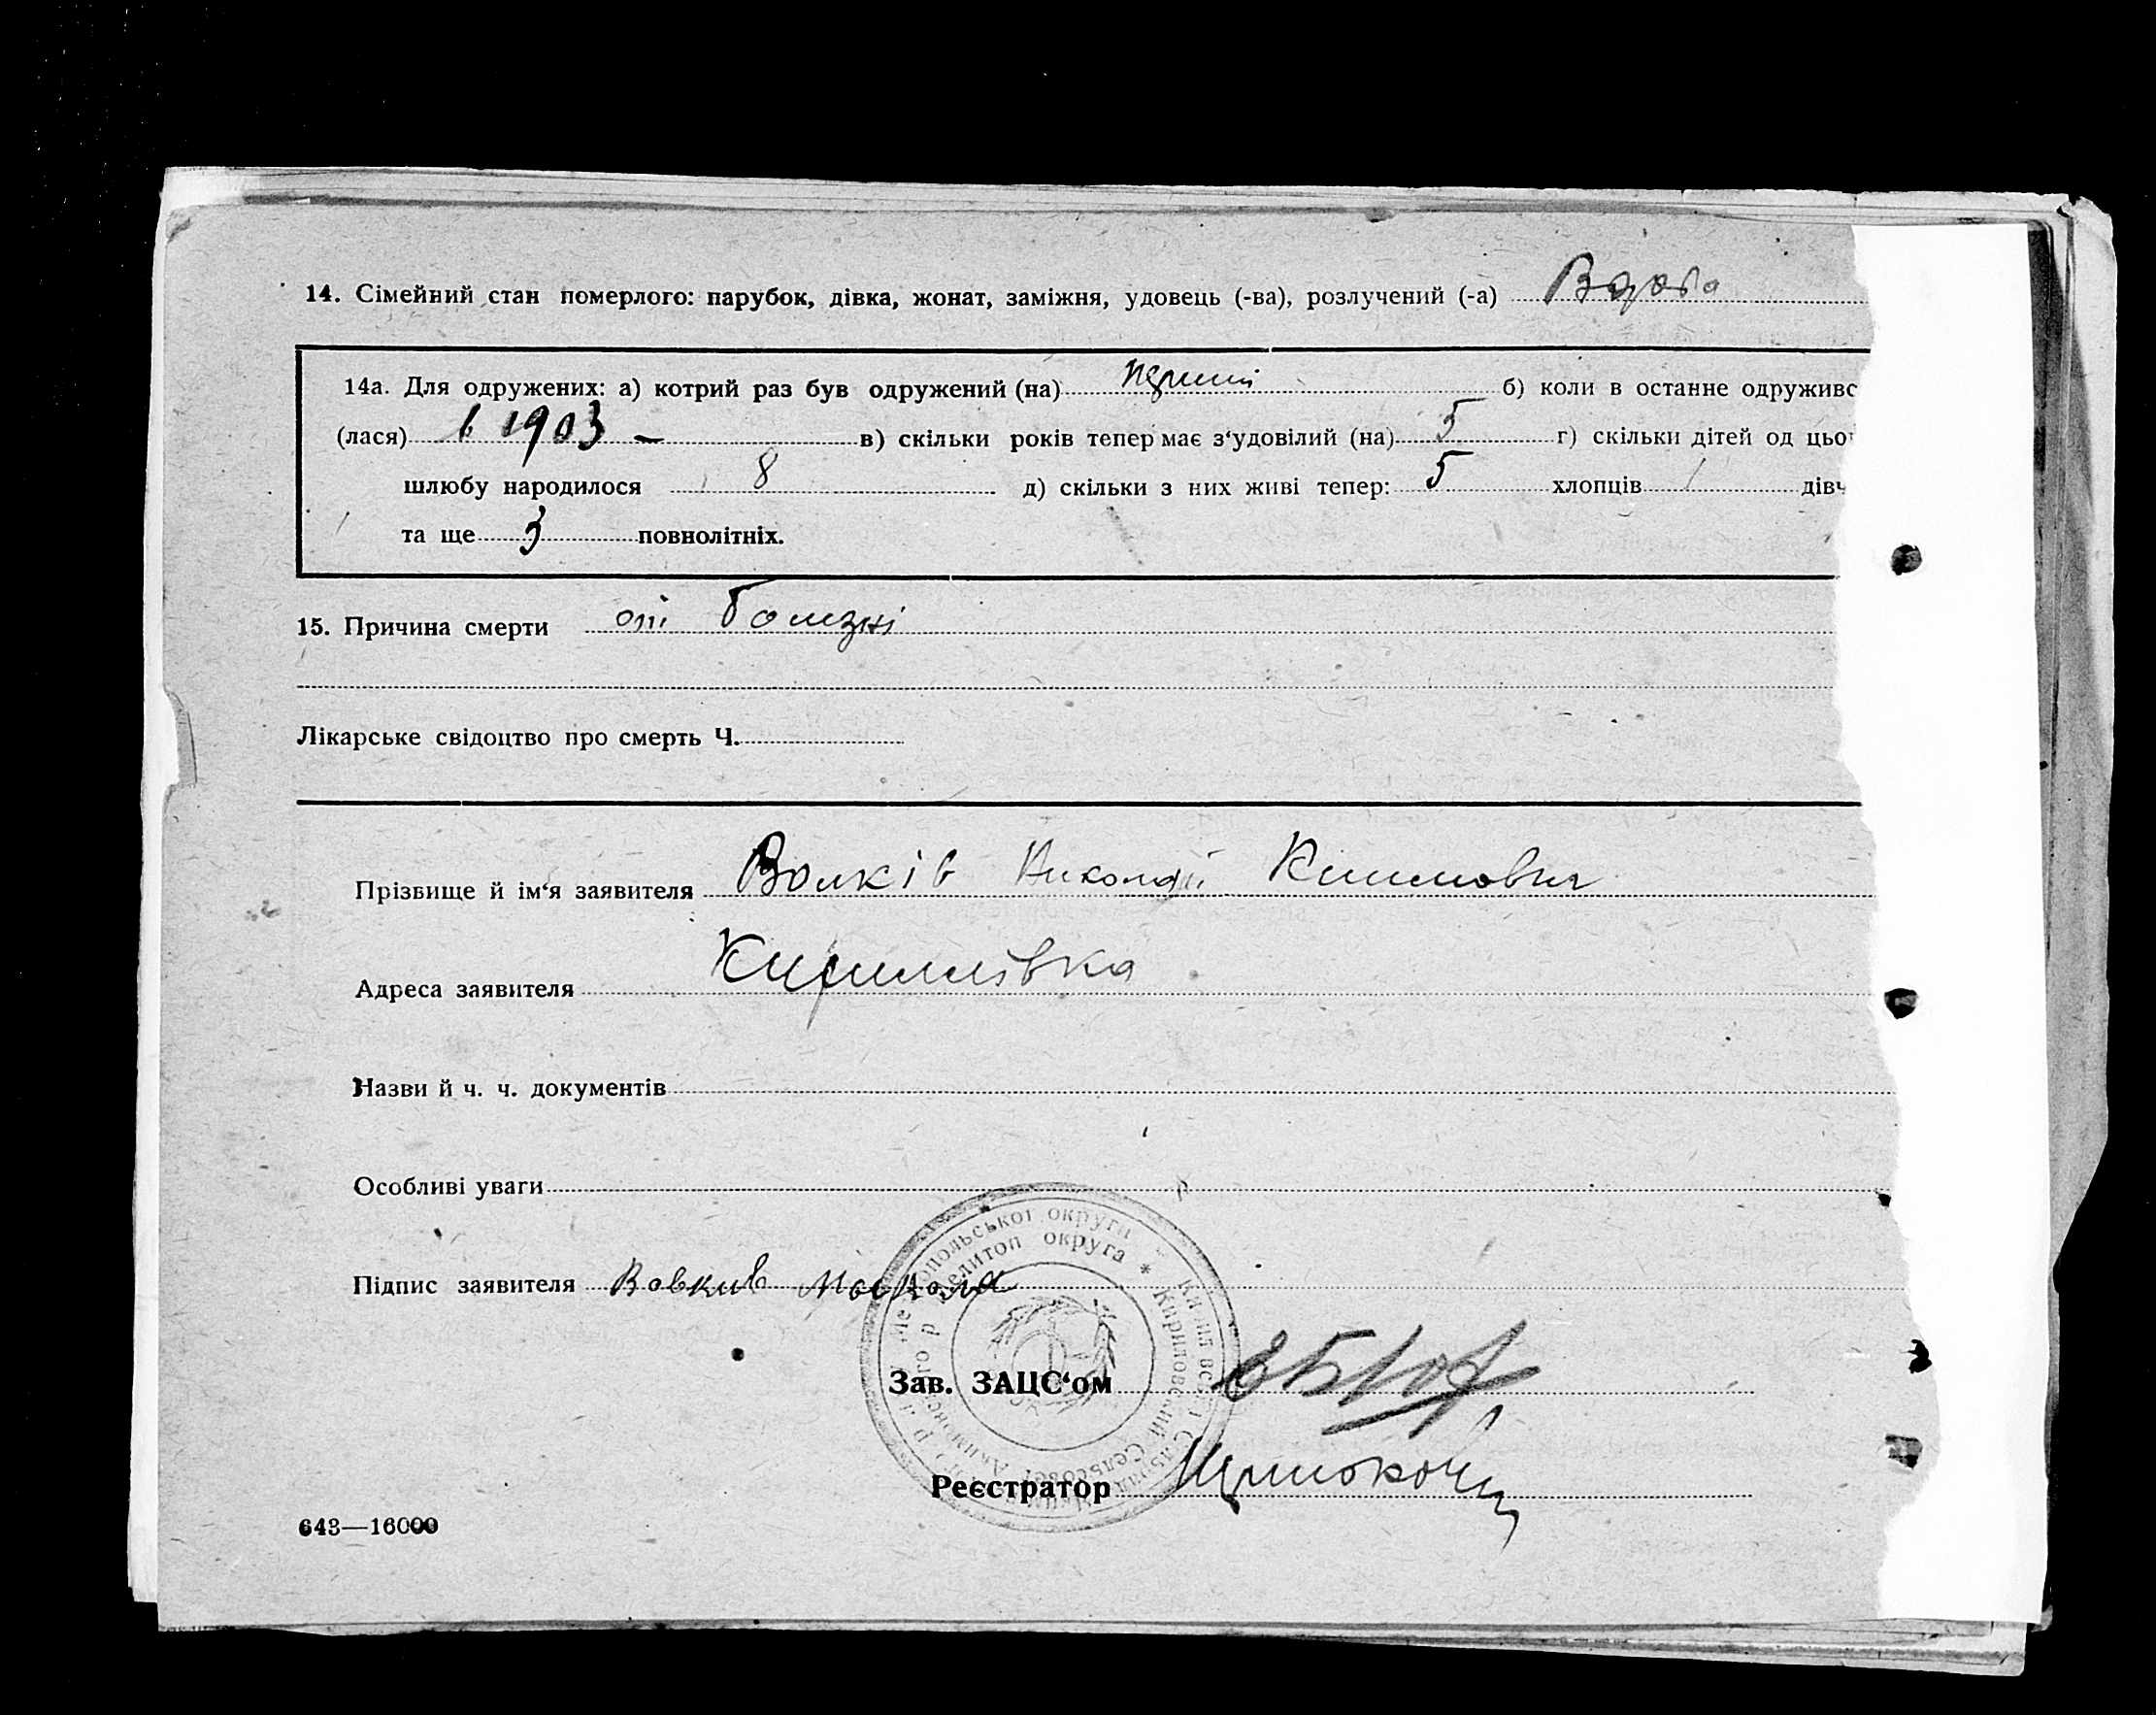 14. Сімейний стан померлого: парубок, дівка, жонат, заміжня, удовець (-ва), розлучений (-а) Вдова
14а. Для одружених: а) котрий раз був одружений (на) перший б) коли в останне одруживс
(лася) в 1903 — в) скільки років тепер має з‘удовілий (на) 5 г) скільки дітей од цьо
шлюбу народилося 8 д) скільки з них живі тепер: 5 хлопців 1 дівч
та ще 3 повнолітніх.
15. Причина смерти от болезні
Лікарське свідоцтво про смерть Ч.
Прізвище й ім‘я заявителя Волків Николай Климович
Адреса заявителя Кириллівка
Назви й ч. ч. документів
Особливі уваги
Підпис заявителя Вовкив Микола
Зав. ЗАЦС‘ом
Реєстратор
643—16000
округи
Мелитоп округа * Кириловский Сельсовет Акимовского р